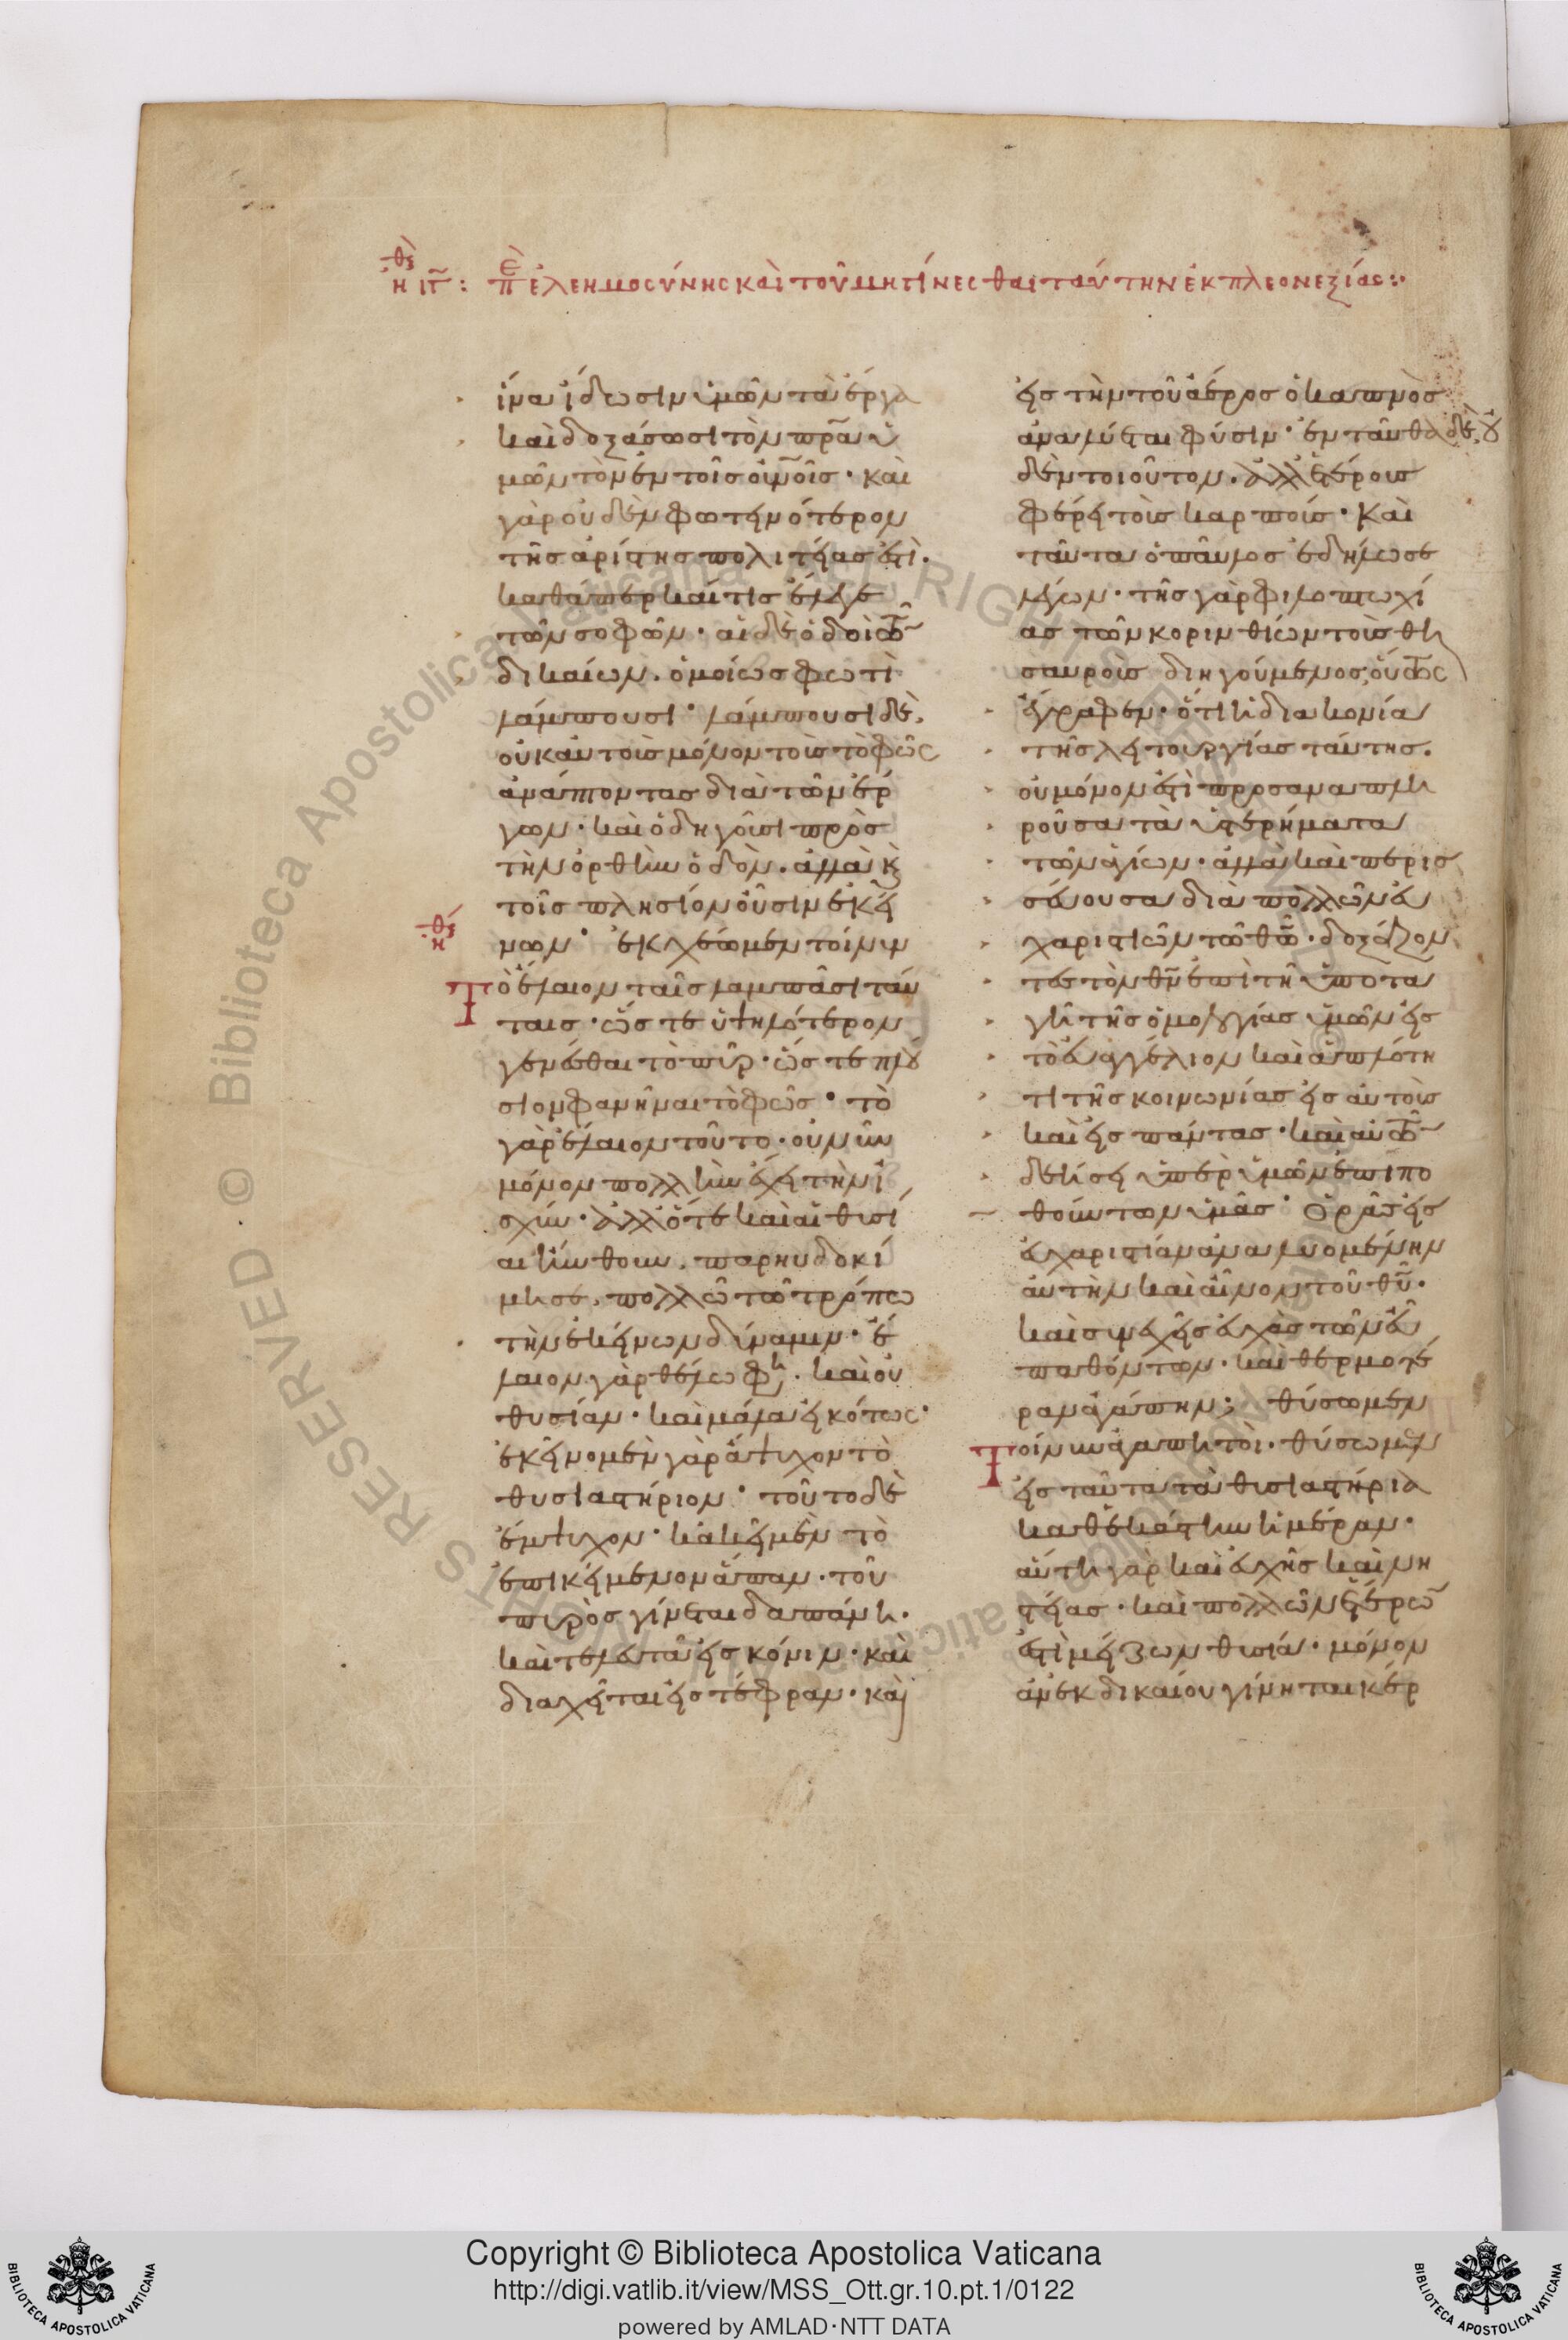 ἠθ ιγ: πε ἐλεημοσύνης καὶ τοῦ μὴ γίνεσθαι ταύτην ἐκ πλεονεξίας:·
ἵνα ἴδωσιν ὑμῶν τὰ ἔργα
καὶ δοξάσωσι τὸν πρα ὑ
μῶν τὸν ἐν τοῖς οὐνοῖς· καὶ
γὰρ οὐδὲν φωτεινότερον
τῆς ἀρίστης πολιτείας ἐστί·
καθάπερ καί τις ἔλεγε
τῶν σοφῶν· αἱ δὲ ὁδοὶ τῶν
δικαίων. ὁμοίως φωτὶ
λάμπουσι· λάμπουσι δὲ,
οὐκ αὐτοῖς μόνον τοῖς τὸ φῶς
ἀνάπτοντας διὰ τῶν ἔρ
γων· καὶ ὁδηγοῦσι πρὸς
τὴν ὀρθὴν ὁδὸν. ἀλλὰ κ
τοῖς πλησίον οὖσιν ἐκεί
νων· ἐκχέωμεν τοίνυν
ἠθ
Τὸ ἔλαιον ταῖς λαμπάσι ταύ
ταις· ὥστε ὑψηλότερον
γενέσθαι τὸ πῦρ· ὥστε πλού
σιον φανῆναι τὸ φῶς· τὸ
γὰρ ἔλαιον τοῦτο· οὐ νῦν
μόνον πολλὴν ἔχει τὴν ἰ
σχύν· ἀλλ ὅτε καὶ αἱ θυσί
αι ἤνθουν. παρηυδοκί
μησε. πολλῶ τῶ τρόπω
τὴν ἐκείνων δύναμιν· ἔ
λαιον γὰρ θέλω φη. καὶ οὐ
θυσίαν· καὶ μάλα εἰκότως·
ἐκεῖνο μὲν γὰρ ἄψυχον τὸ
θυσιαστήριον· τοῦτο δὲ
ἔμψυχον· κἀκεῖ μὲν τὸ
ἐπικείμενον ἅπαν· τοῦ
πυρὸς γίνεται δαπάνη·
καὶ τελευτᾶ εἰς κόνιν· καὶ
διαχεῖται εἰς τέφραν· καὶ
εἰς τὴν τοῦ ἀέρος ὁ καπνὸς
ἀναλύεται φύσιν· ἐνταῦθα δὲ, οὐ
δὲν τοιοῦτον. ἀλλ ἑτέροις
φέρει τοῖς καρποῖς· Καὶ
ταῦτα ὁ παῦλος ἐδήλωσε
λέγων· τῆς γὰρ φιλοπτωχί
ας τῶν κορινθίων τοῖς θη
σαυροῖς διηγούμενος, οὕτως
ἔγραφεν· ὅτι ἡ διακονία
τῆς λειτουργίας ταύτης.
οὐ μόνον ἐστὶ προσαναπλη
ροῦσα τὰ ὑστερήματα
τῶν ἁγίων· ἀλλὰ καὶ περισ
σεύουσα διὰ πολλῶν εὐ
χαριστιῶν τῶ θω· δοξάζον
τες τὸν θν ἐπὶ τῆ ὑποτα
γῆ τῆς ὁμολογίας ὑμῶν εἰς
τὸ εὐαγγέλιον καὶ ἁπλότη
τι τῆς κοινωνίας εἰς αὐτοὺς
καὶ εἰς πάντας· καὶ αὐτῶν
δεήσει ὑπὲρ ὑμῶν ἐπιπο
θούντων ὑμᾶς· Ὁρᾶς εἰς
εὐχαριστίαν ἀναλυομένην
αὐτὴν καὶ αἶνον τοῦ θυ·
καὶ συνεχεῖς εὐχὰς τῶν εὖ
παθόντων· καὶ θερμοτέ
ραν ἀγάπην; θύσωμεν
Τοίνυν ἀγαπητοὶ. θύσωμεν
εἰς ταῦτα τὰ θυσιαστήρια
καθ ἑκάστην ἡμέραν·
αὕτη γὰρ καὶ εὐχῆς καὶ νη
στείας· καὶ πολλῶν ἑτέρων
ἐστὶ μείζων θυσία· μόνον
ἂν ἐκ δικαίου γίνηται κέρ
Copyright © Biblioteca Apostolica Vaticana
http://digi.vatlib.it/view/MSS_Ott.gr.10.pt.1/0122
powered by AMLAD·NTT DATA